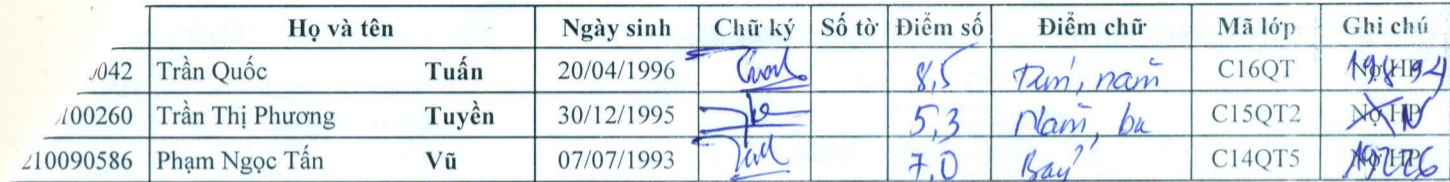 Họ và tên Ngày sinh Chữ ký Số tờ Điểm số Điểm chữ Mã lớp Ghi chú
0042 Trần Quốc Tuấn 20/04/1996 8,5 Tám, năm C16QT Nợ HP
100260 Trần Thị Phương Tuyền 30/12/1995 5,3 Năm, ba C15QT2 Nợ HP
210090586 Phạm Ngọc Tấn Vũ 07/07/1993 7,0 Bảy C14QT5 Nợ HP